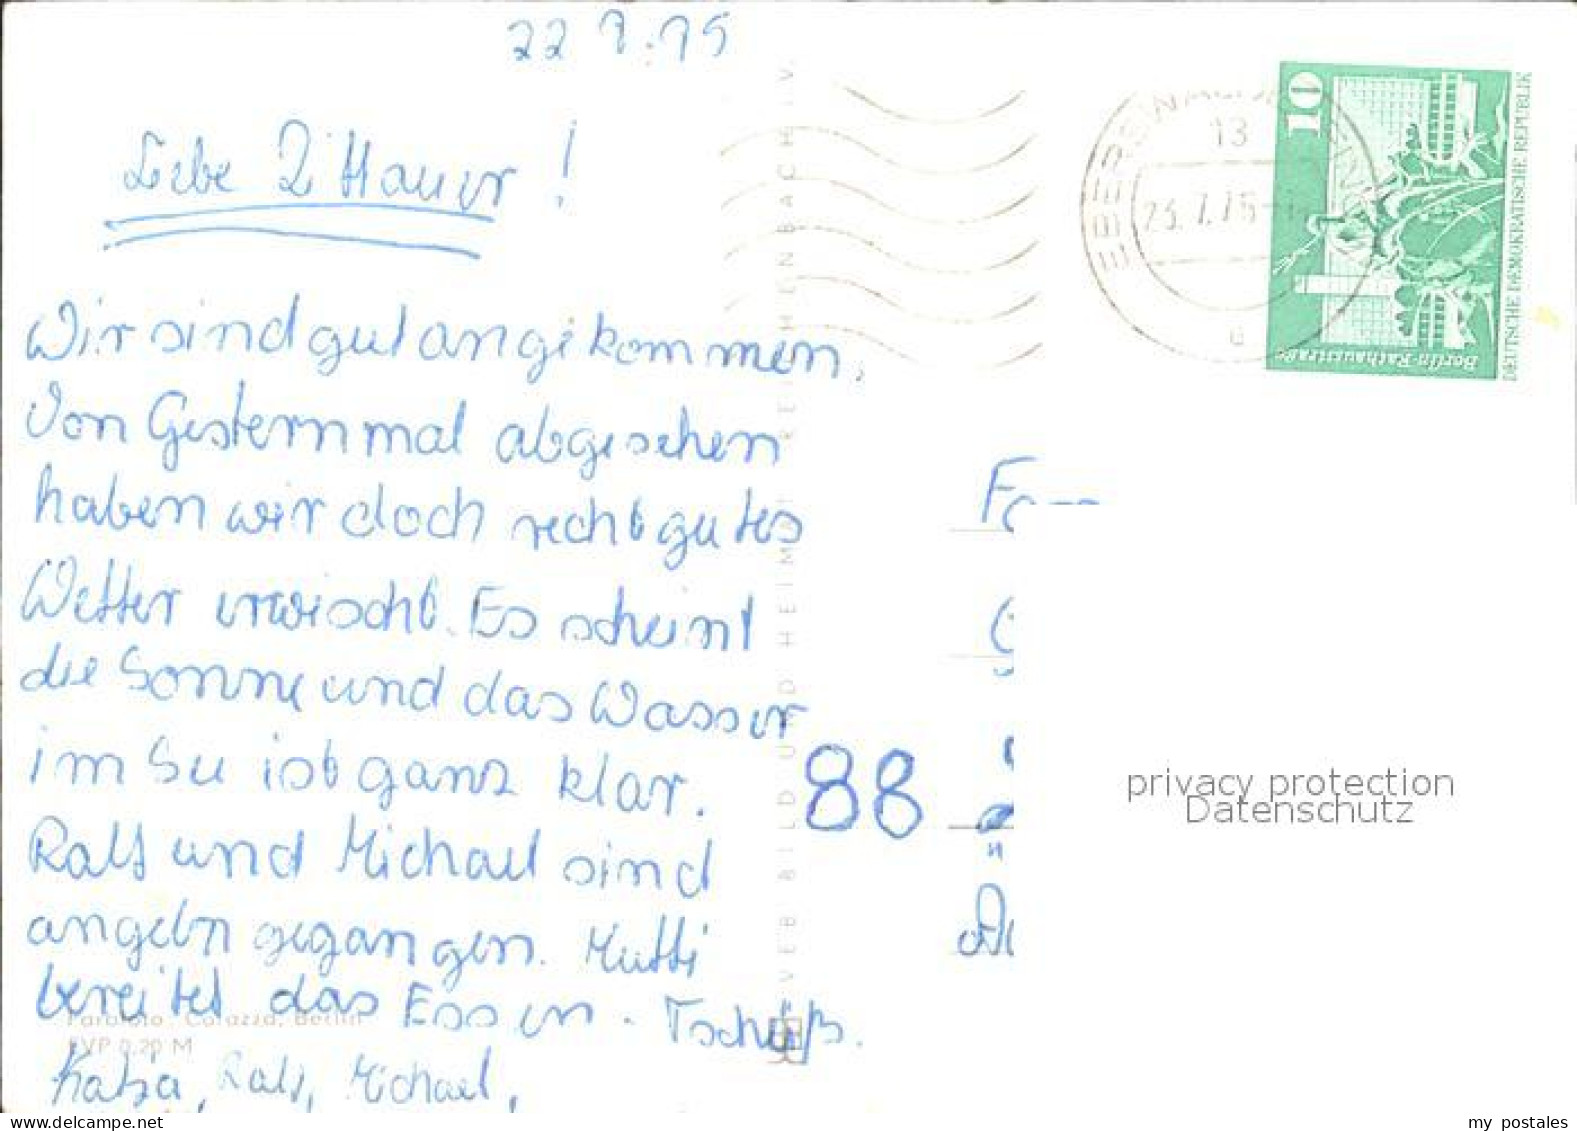 22 7.75
Liebe Zittauer!
Wir sind gut angekommen.
Von Gestern mal abgesehen
haben wir doch recht gutes
Wetter erwischt. Es scheint
die Sonne und das Wasser
im See ist ganz klar.
Ralf und Michael sind
angeln gegangen. Mutti
bereitet das Essen. Tschüß.
Katja, Ralf, Michael,
Farbfoto: Corazza, Berlin
EVP 0,20 M
VEB BILD UND HEIMAT REICHENBACH I. V.
13
23.7.75
10
Berlin-Rathausstraße
DEUTSCHE DEMOKRATISCHE REPUBLIK
88
privacy protection
Datenschutz
www.delcampe.net
my_postales